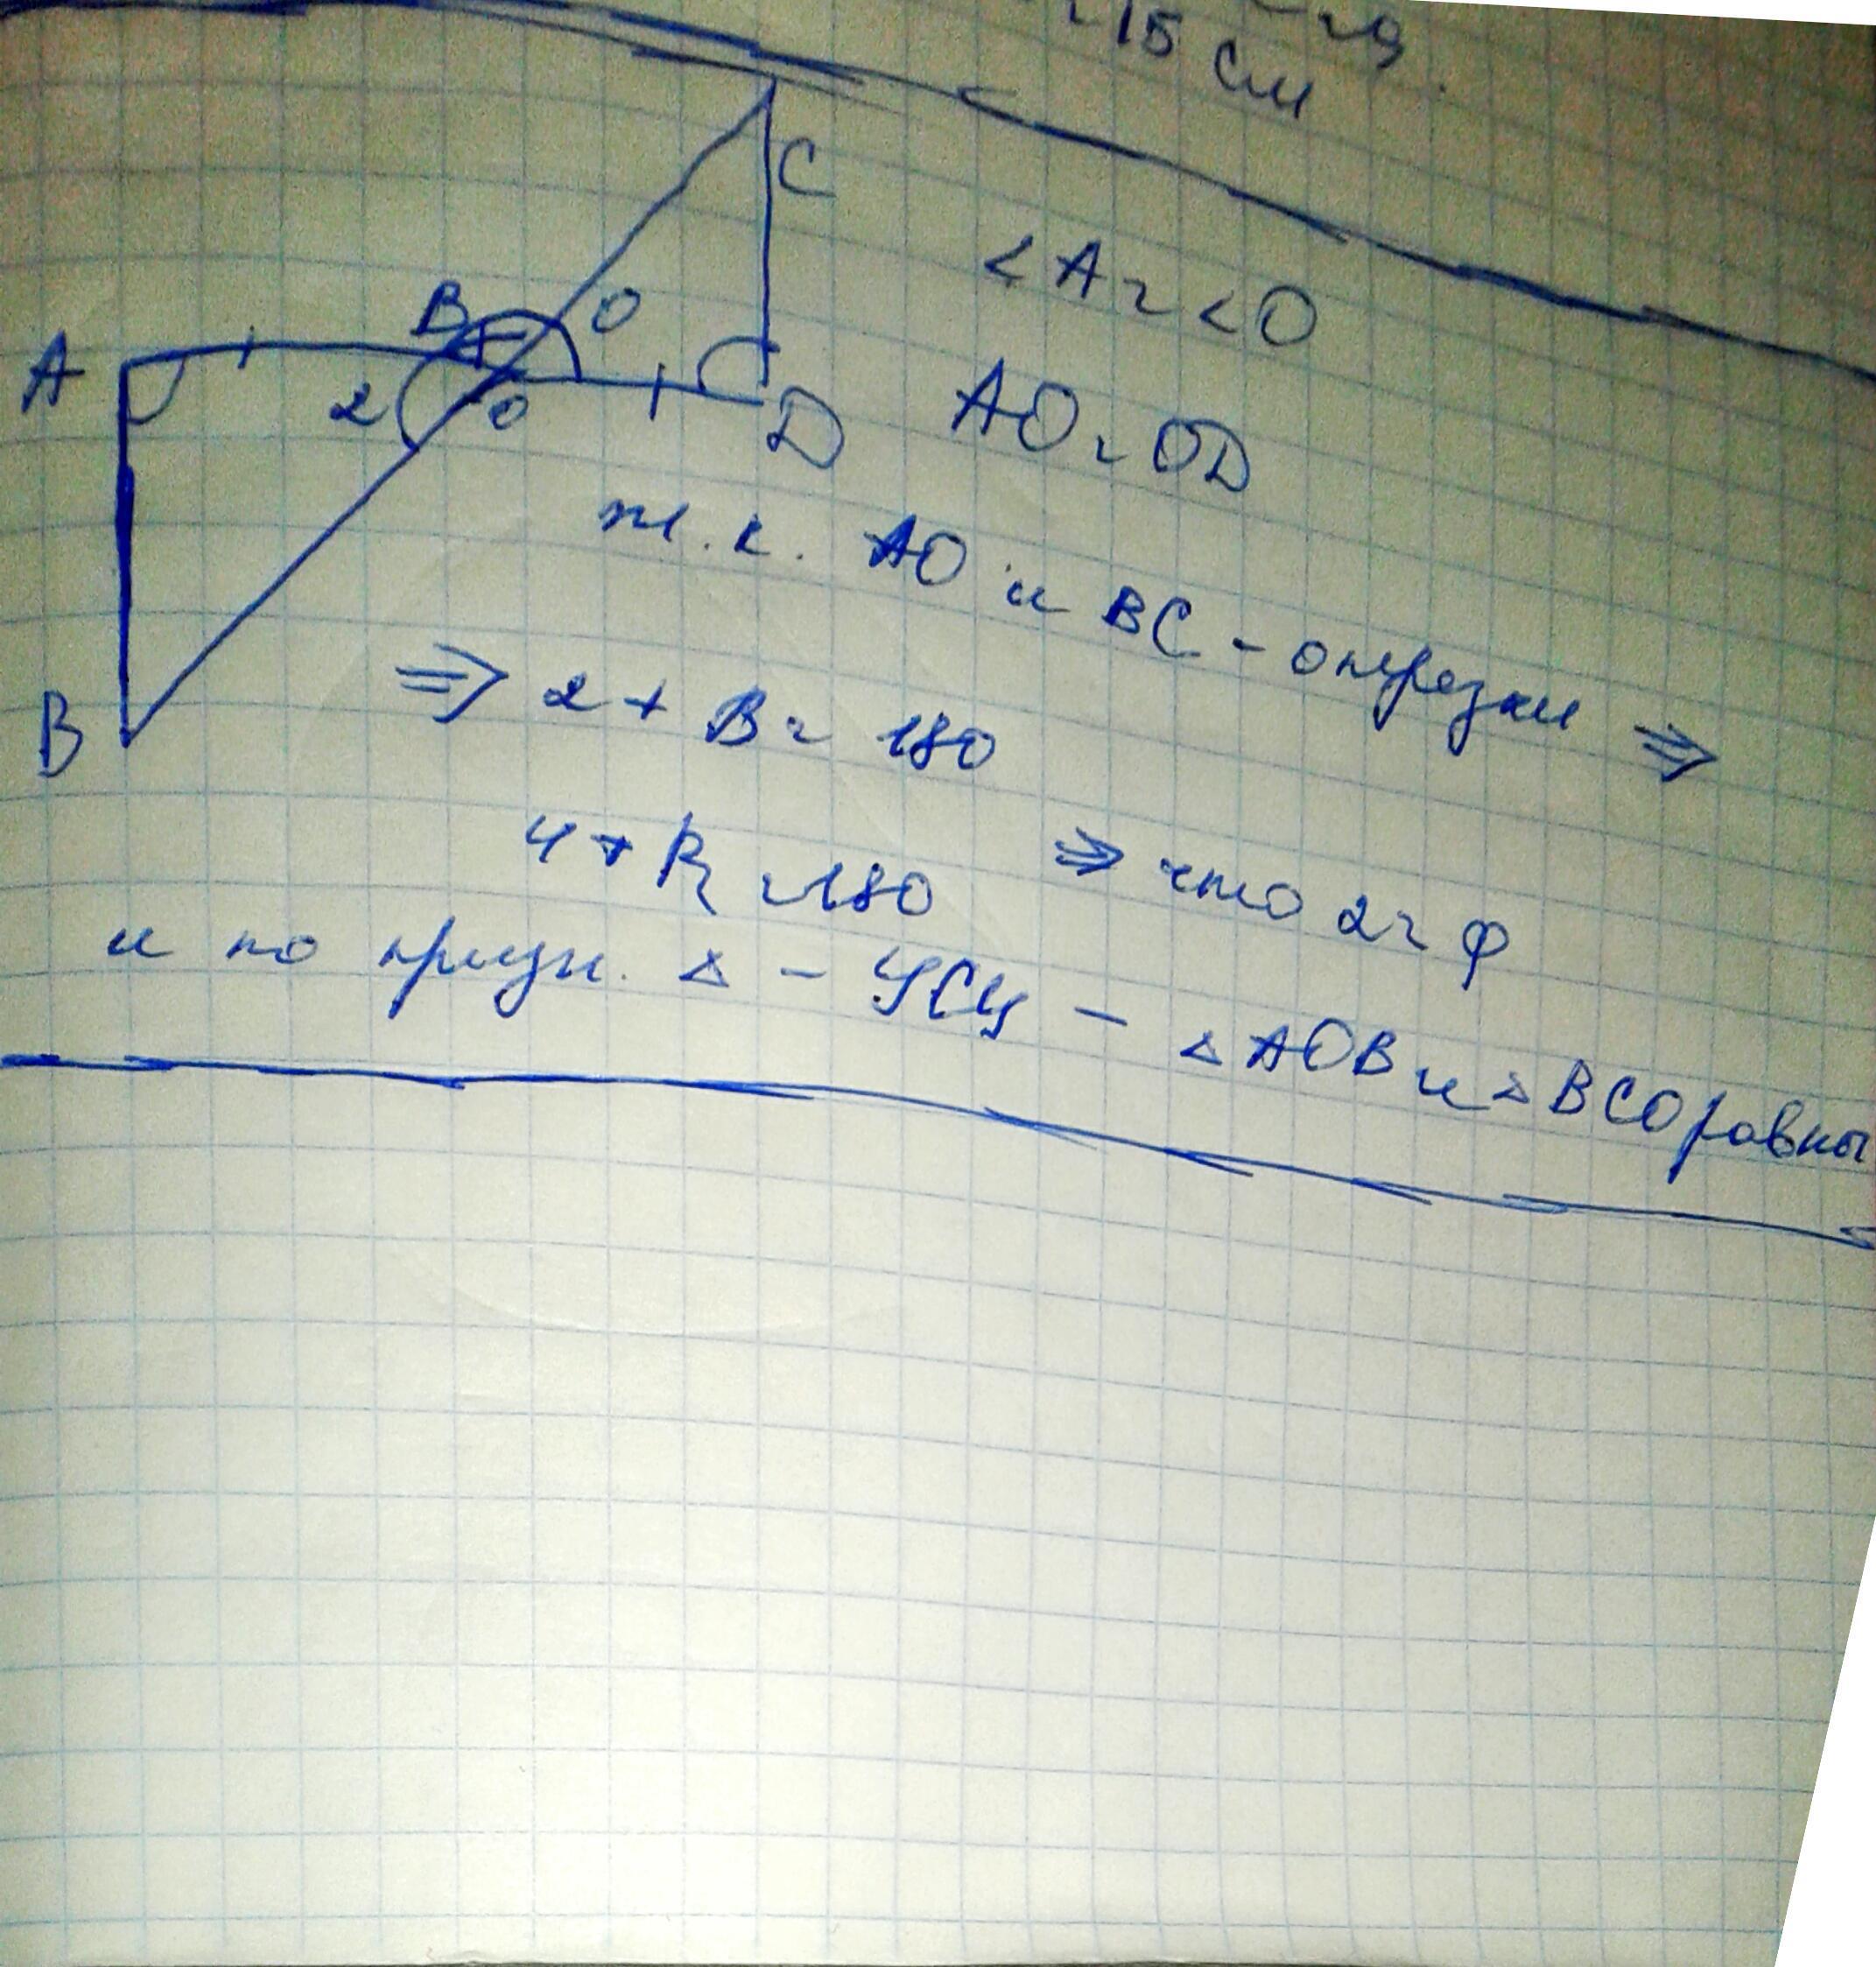 15 см
C
B
O
A
2
O
D
B
<A = <O
AO = OD
т.к. AO и BC - отрезки ⇒
⇒ 2 + B = 180
4 + B = 180 ⇒ что 2 = φ
и по призн. △ - УСУ - △AOB и △BCO равны